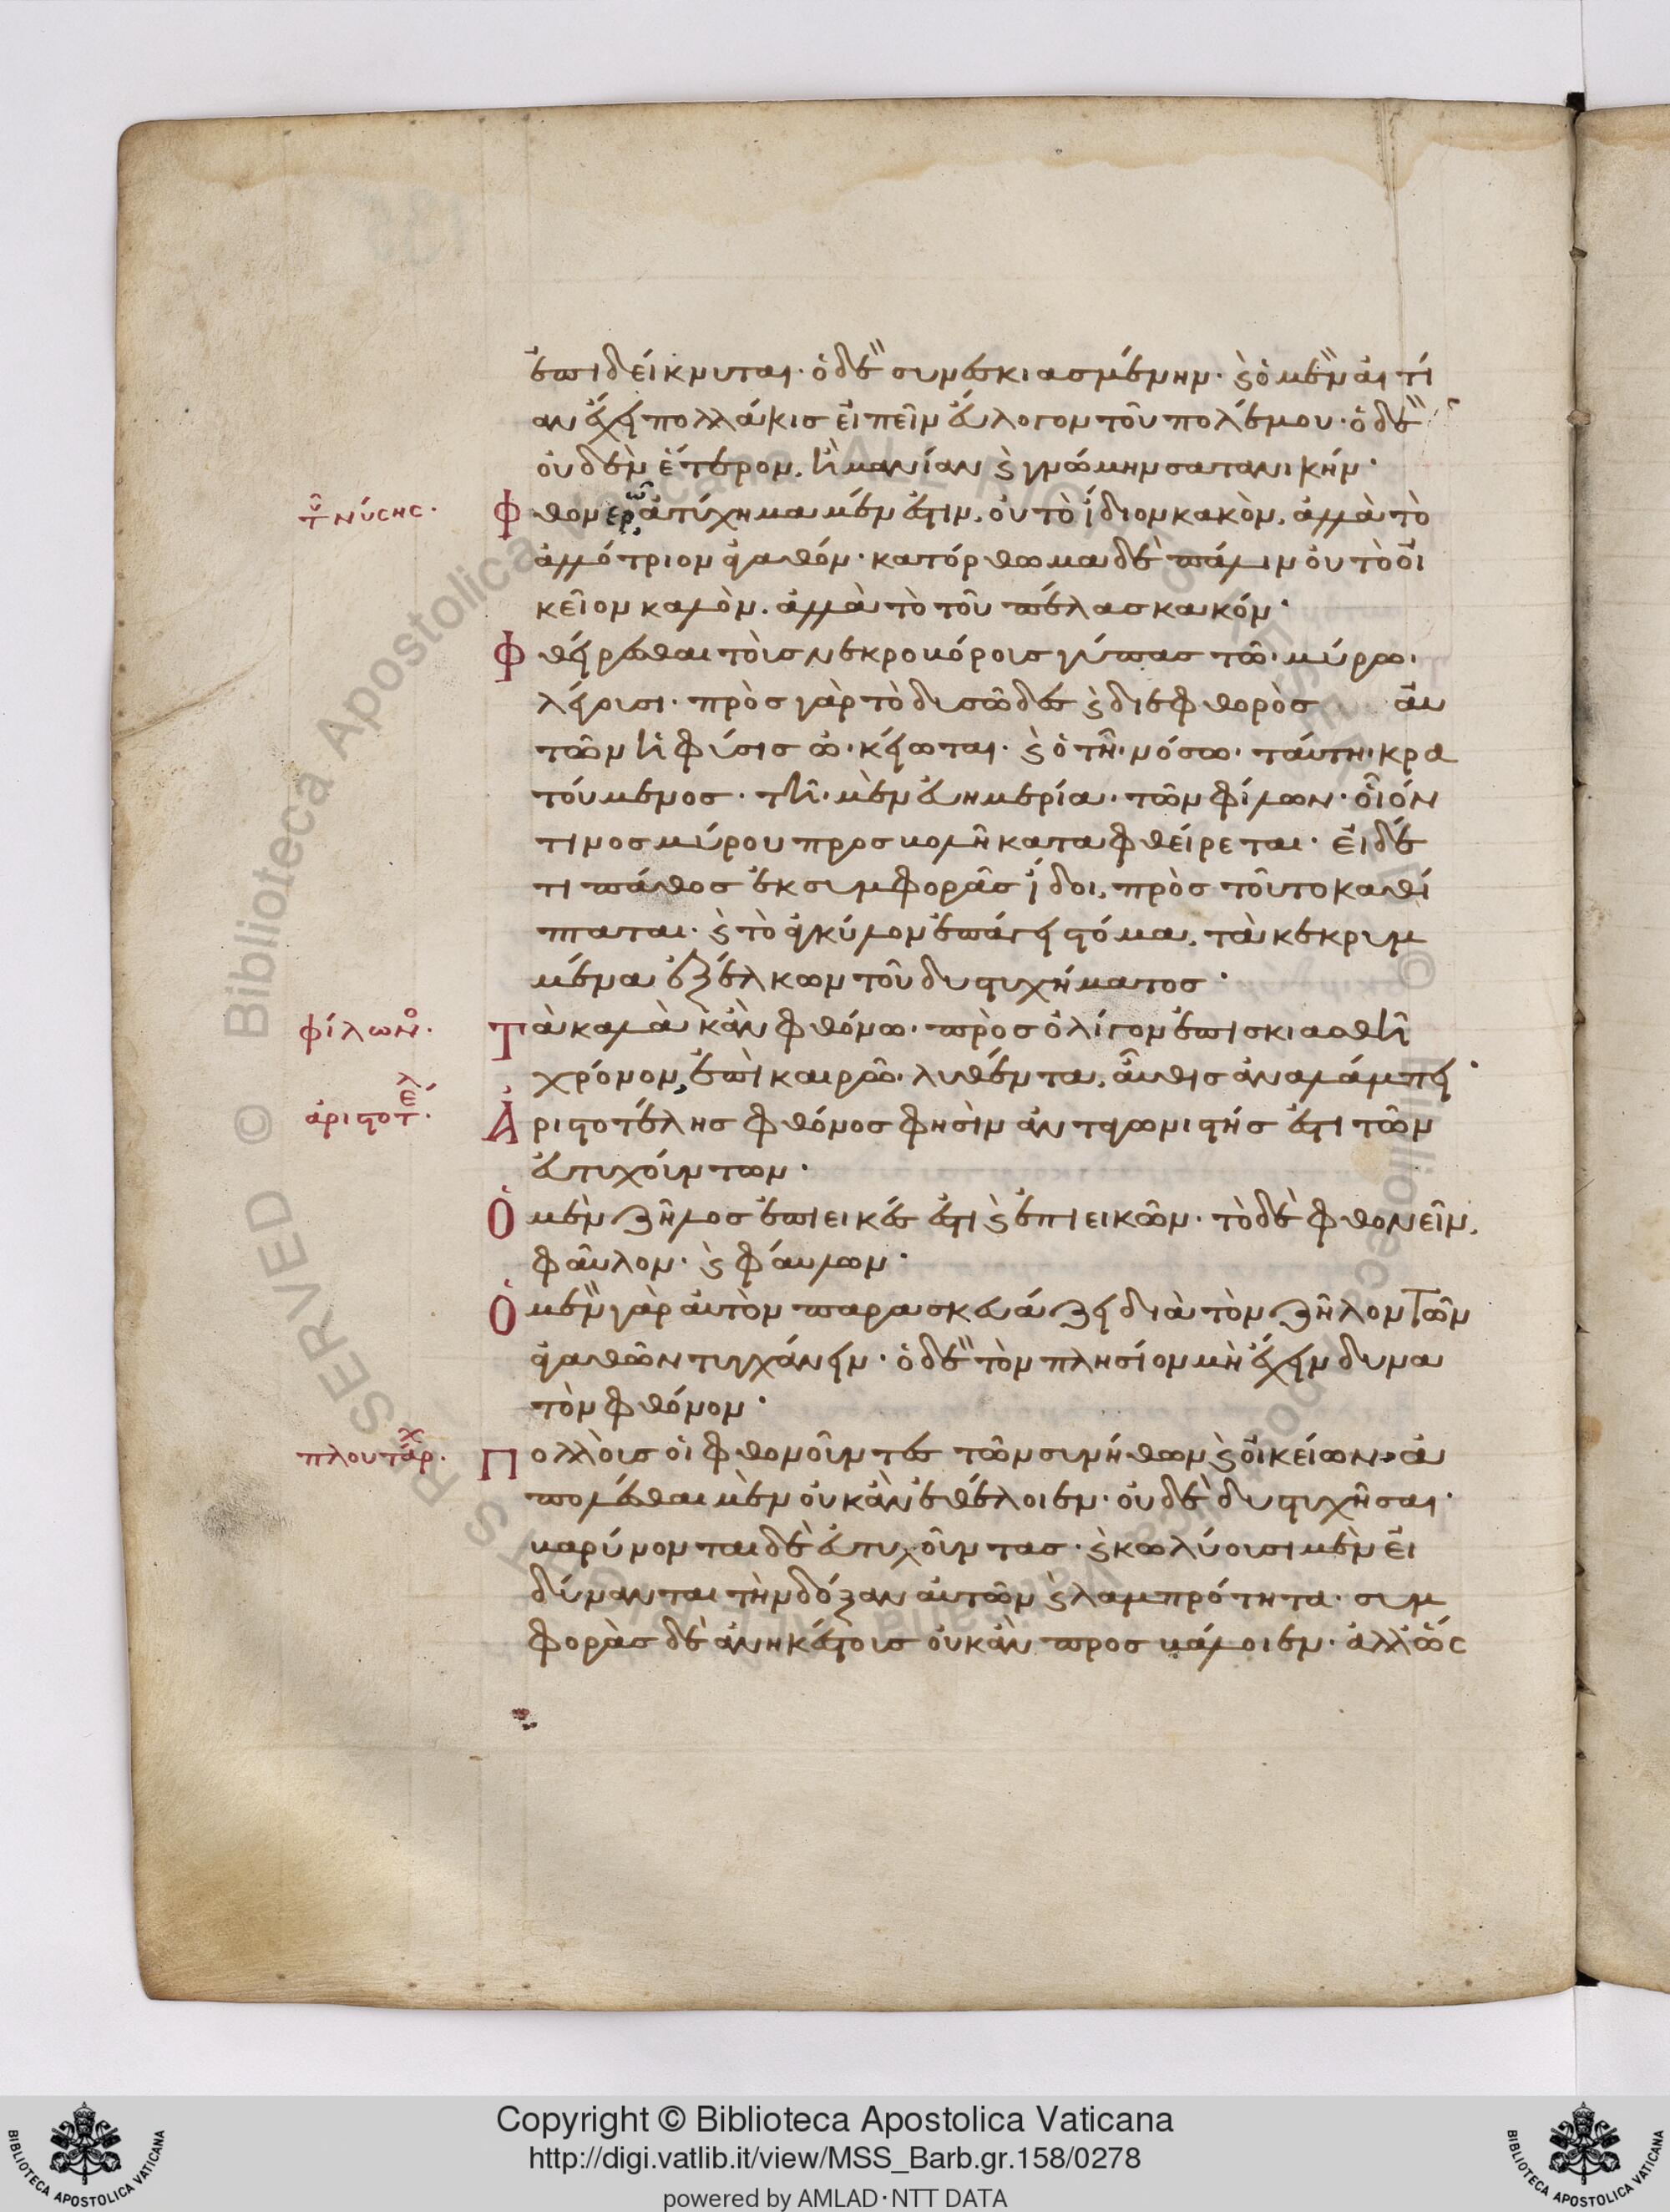 ἐπιδείκνυται· ὁ δὲ συνεσκιασμένην· καὶ ὁ μὲν αἰτί
αν ἔχει πολλάκις εἰπεῖν εὔλογον τοῦ πολέμου· ὁ δὲ
οὐδὲν ἕτερον, ἢ μανίαν καὶ γνώμην σατανικήν·
τοῦ νύσης·
Φθονερῶ ἀτύχημα μέν ἐστιν, οὐ τὸ ἴδιον κακὸν, ἀλλὰ τὸ
ἀλλότριον ἀγαθόν· κατόρθωμα δὲ πάλιν οὐ τὸ οἰ
κεῖον καλὸν, ἀλλὰ τὸ τοῦ πέλας κακόν·
Φθείρεσθαι τοὺς νεκροβόρους γύπας τῶ μύρω
λέγουσι· πρὸς γὰρ τὸ δυσῶδες καὶ διεφθορὸς αυ
τῶν ἡ φύσις ὠκείωται· καὶ ὁ τῆ νόσω ταύτη κρα
τούμενος· τῆ μὲν εὐημερία τῶν φίλων οἷόν
τινος μύρου προσβολῆ καταφθείρεται· εἰ δέ
τι πάθος ἐκ συμφορᾶς ἴδοι, πρὸς τοῦτο καθί
πταται· καὶ τὸ ἀγκύλον ἐπάγει στόμα, τὰ κεκρυμ
μένα ἐξέλκων τοῦ δυστυχήματος·
φίλωνο·
Τὰ καλὰ κἂν φθόνω πρὸς ὀλίγον ἐπισκιασθῆ
χρόνον, ἐπὶ καιρῶ λυθέντα, αὖθις ἀναλάμπει·
ἀριστοτέλ·
Ἀριστοτέλης φθόνος φησὶν ἀνταγωνιστής ἐστι τῶν
εὐτυχούντων·
Ὁ μὲν ζῆλος ἐπιεικές ἐστι καὶ ἐπιεικῶν· τὸ δὲ φθονεῖν,
φαῦλον· καὶ φαύλων·
Ὁ μὲν γὰρ αὐτὸν παρασκευάζει διὰ τὸν ζῆλον τῶν
ἀγαθῶν τυγχάνειν· ὁ δὲ τὸν πλησίον μὴ ἔχειν δυνα
τὸν φθόνον·
πλουτάρχ·
Πολλοὺς οἱ φθονοῦντες τῶν συνήθων καὶ οἰκείων, ἀ
πολέσθαι μὲν οὐκ ἂν ἐθέλοιεν· οὐδὲ δυστυχῆσαι·
βαρύνονται δὲ εὐτυχοῦντας· καὶ κωλύουσι μὲν εἰ
δύνανται τὴν δόξαν αὐτῶν καὶ λαμπρότητα· συμ
φορὰς δὲ ἀνηκέστους οὐκ ἂν προσβάλοιεν· ἀλλ' ὡς
Copyright © Biblioteca Apostolica Vaticana
http://digi.vatlib.it/view/MSS_Barb.gr.158/0278
powered by AMLAD·NTT DATA